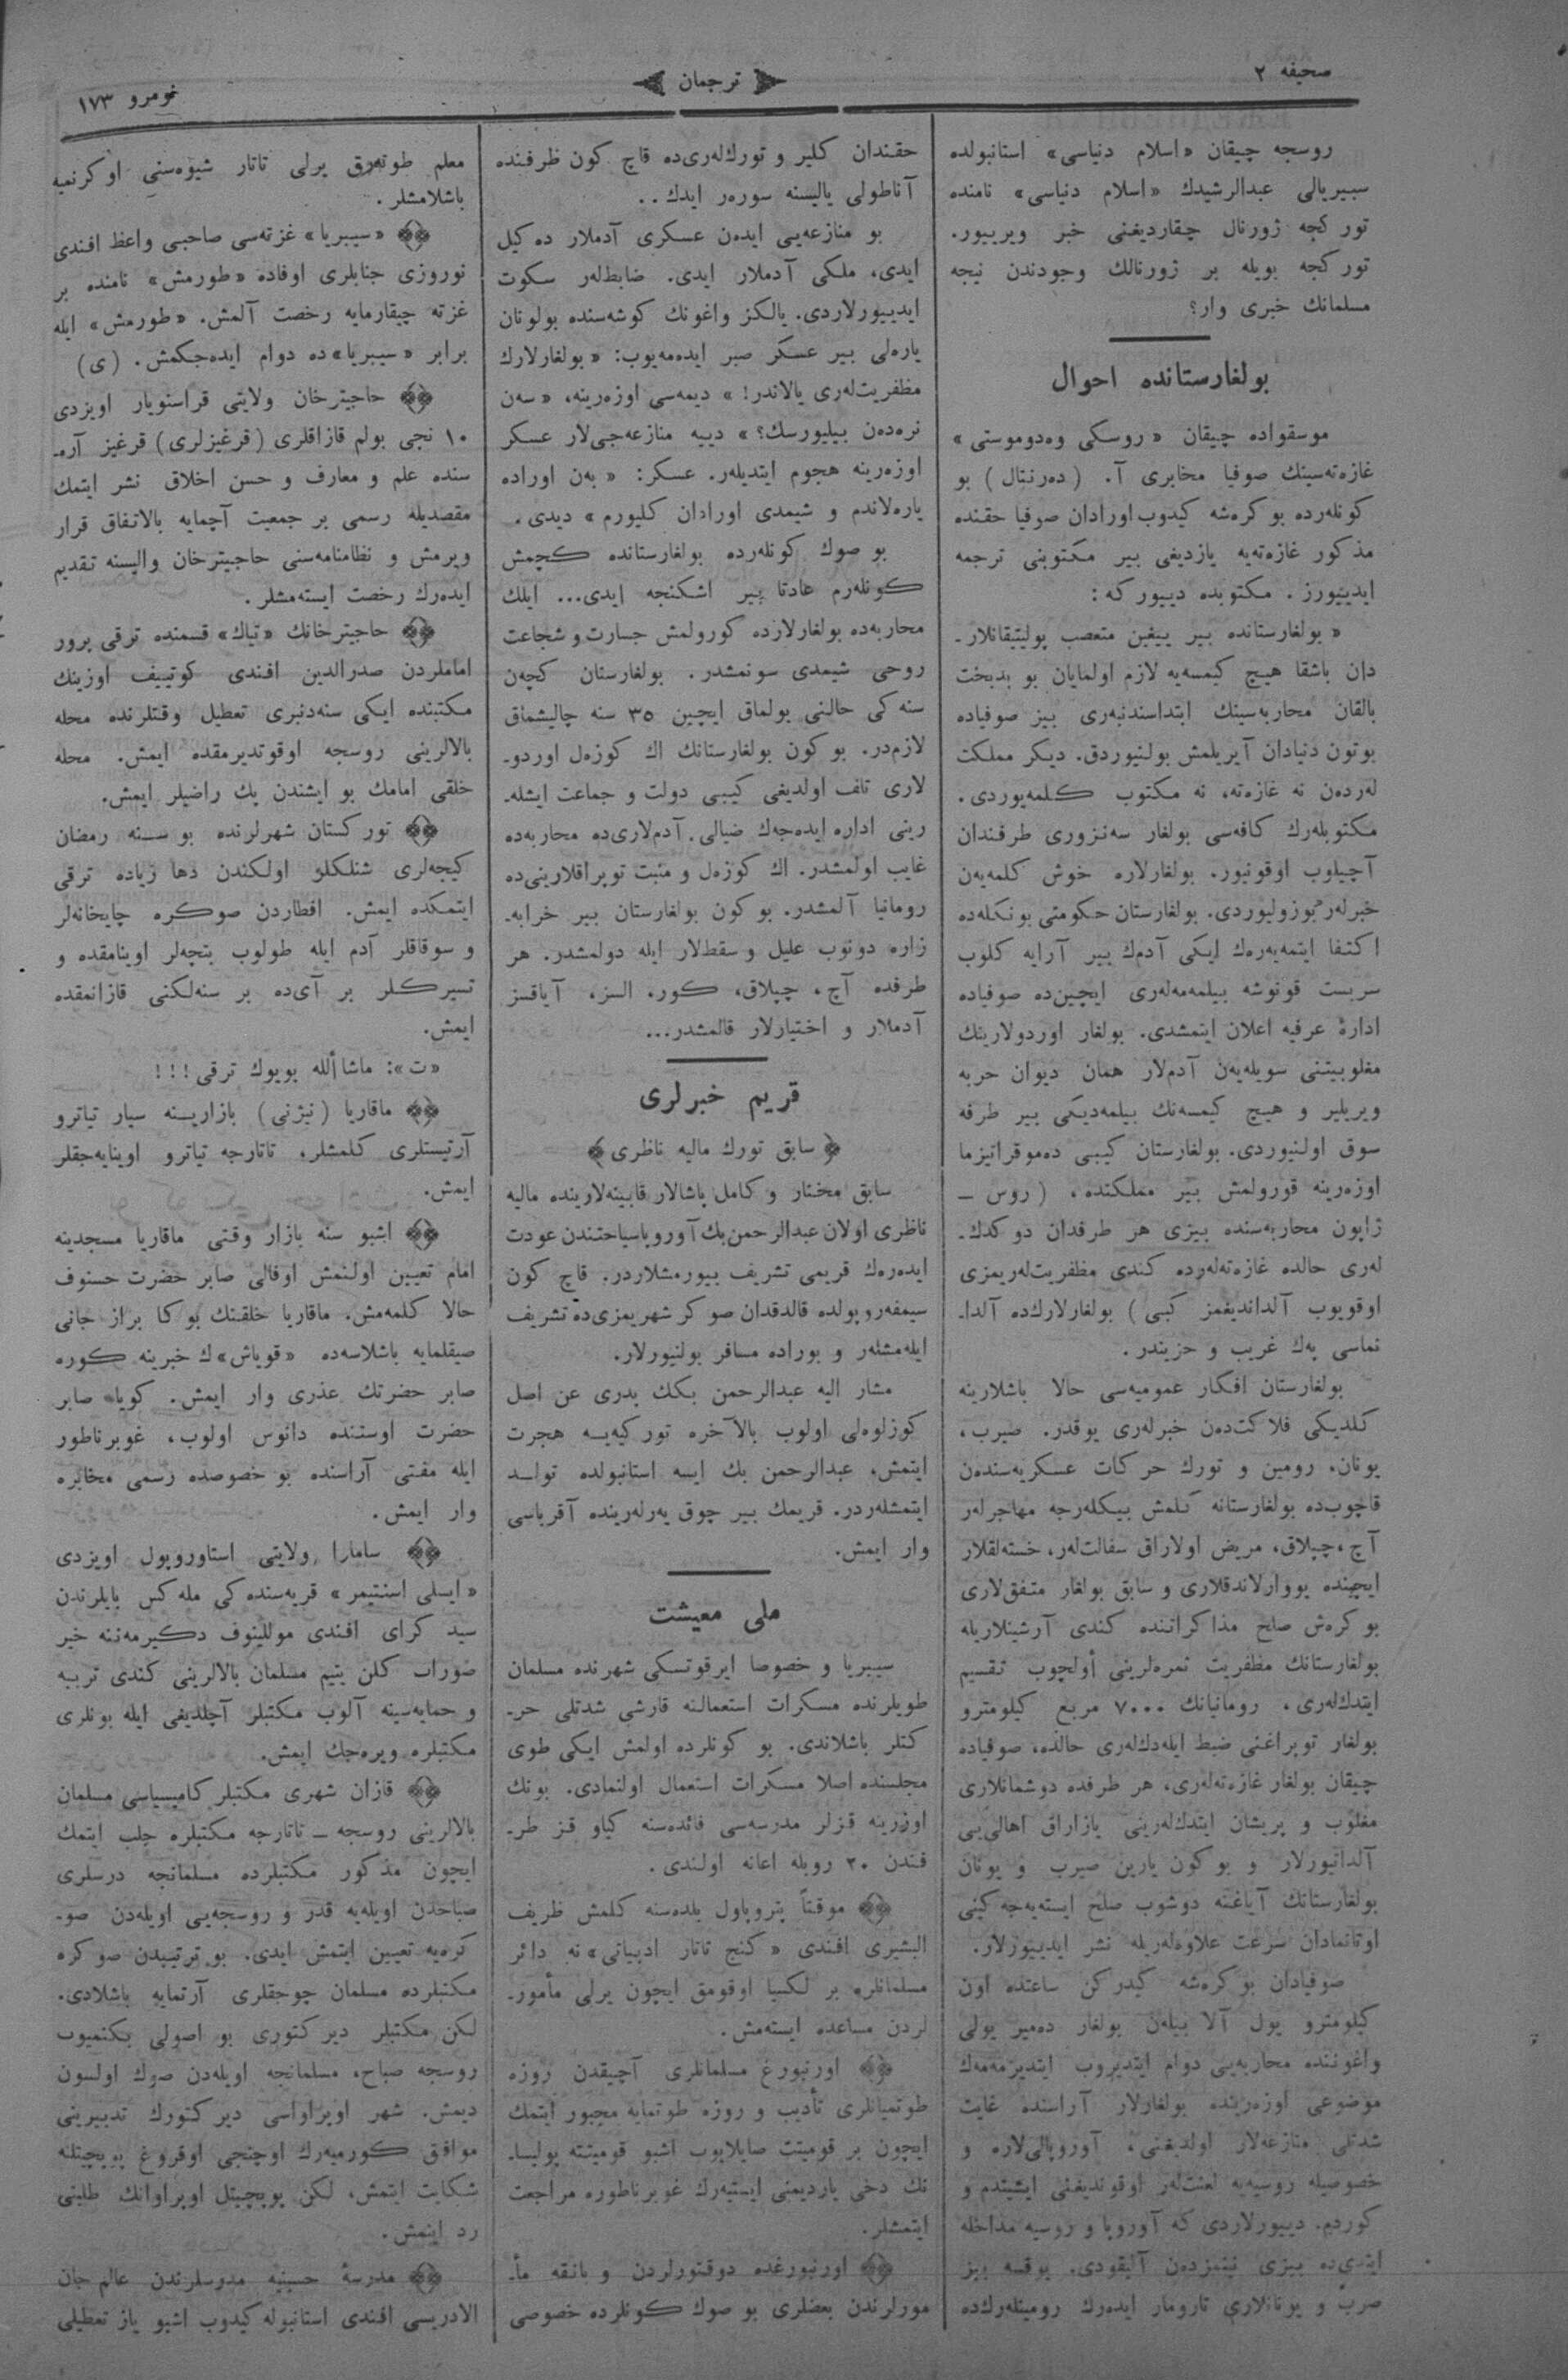 صحیفه ٢
ترجمان
نومرو ١٧٣
روسجه چیقان «اسلام دنیاسی» استانبولده
سیبریالی عبدالرشیدك «اسلام دنیاسی» نامنده
تورکجه ژورنال چیقاردیغنی خبر ویرییور.
تورکجه بویله بر ژورنالك وجودندن نیجه
مسلمانك خبری وار؟
بولغارستانده احوال
موسقواده چیقان «روسکی وه‌دوموستی»
غازه‌ته‌سینك صوفیا مخابری آ. (ده‌رنتال) بو
کونله‌رده بوکره‌شه کیدوب اورادان صوفیا حقنده
مذکور غازه‌ته‌یه یازدیغی بیر مکتوبنی ترجمه
ایدییورز. مکتوبده دییور که:
«بولغارستانده بیر ییغین متعصب پولیتیقانلار-
دان باشقا هیچ کیمسه‌یه لازم اولمایان بو بدبخت
بالقان محاربه‌سینك ابتداسندنبه‌ری بیز صوفیاده
بوتون دنیادان آیریلمش بولنیوردق. دیکر مملکت
له‌ردەن نه غازه‌ته، نه مکتوب کلمه‌یوردی.
مکتوبله‌رك کافه‌سی بولغار سه‌نزوری طرفندان
آچیلوب اوقونیور. بولغارلاره خوش کلمه‌یه‌ن
خبرله‌ر بوزولیوردی. بولغارستان حکومتی بونکله‌ده
اکتفا ایتمه‌یه‌رەك ایکی آدمك بیر آرایه کلوب
سربست قونوشه بیلمه‌مه‌له‌ری ایچین‌ده صوفیاده
ادارۀ عرفیه اعلان ایتمشدی. بولغار اوردولارینك
مغلوبیتنی سویله‌یه‌ن آدم‌لار همان دیوان حربه
ویریلیر و هیچ کیمسه‌نك بیلمه‌دیکی بیر طرفه
سوق اولنیوردی. بولغارستان کیبی ده‌موقراتیزما
اوزه‌رینه قورولمش بیر مملکتده، (روس ـ
ژاپون محاربه‌سنده بیزی هر طرفدان دوکدك-
له‌ری حالده غازه‌ته‌له‌رده کندی مظفریت‌له‌ریمزی
اوقویوب آلداندیغمز کبی) بولغارلارك‌ده آلدا-
نماسی پەك غریب و حزیندر.
بولغارستان افکار عمومیه‌سی حالا باشلارینه
کلدیکی فلاکت‌دەن خبرله‌ری یوقدر. صیرب،
یونان، رومین و تورك حرکات عسکریه‌سندەن
قاچوب‌ده بولغارستانه کلمش بیکله‌رجه مهاجرله‌ر
آچ، چپلاق، مریض اولاراق سفالت‌له‌ر، خسته‌لقلار
ایچنده یووارلاندقلاری و سابق بولغار متفق‌لاری
بوکرەش صلح مذاکراتنده کندی آرشینلاریله
بولغارستانك مظفریت ثمره‌لرینی أولچوب تقسیم
ایتدك‌له‌ری، رومانیانك ٧٠٠٠ مربع کیلومترو
بولغار توپراغنی ضبط ایله‌دك‌له‌ری حالده، صوفیاده
چیقان بولغار غازه‌ته‌له‌ری، هر طرفده دوشمانلاری
مغلوب و پریشان ایتدك‌له‌رینی یازاراق اهالی‌یی
آلداتیورلار و بوکون یارین صیرب و یونان
بولغارستانك آیاغنه دوشوب صلح ایسته‌یه‌جه‌کینی
اوتانمادان سرعت علاوه‌له‌ریله نشر ایدییورلار.
صوفیادان بوکره‌شه کیدرکن ساعتده اون
کیلومترو یول آلا بیله‌ن بولغار ده‌میر یولی
واغوننده محاربه‌یی دوام ایتدیروب ایتدیرمه‌مەك
موضوعی اوزه‌رینده بولغارلار آراسنده غایت
شدتلی منازعه‌لار اولدیغنی، آوروپالی‌لاره و
خصوصیله روسیه‌یه لعنت‌له‌ر اوقوندیغنی ایشیتدم و
کوردم. دییورلاردی که آوروپا و روسیه مداخله
بیزی آلیقودی. یوقسه بیز
صرب و یونانلاری تارومار ایدەرك رومینله‌رك‌ده
حقندان کلیر و تورك‌له‌ری‌ده قاچ کون ظرفنده
آناطولی یالیسنه سورەر ایدك..
بو منازعه‌یی ایدەن عسکری آدملار ده‌کیل
ایدی، ملکی آدملار ایدی. ضابط‌له‌ر سکوت
ایدییورلاردی. یالکز واغونك کوشه‌سنده بولونان
یاره‌لی بیر عسکر صبر ایده‌مه‌یوب: «بولغارلارك
مظفریت‌له‌ری یالاندر!» دیمه‌سی اوزه‌رینه، «سەن
نره‌دەن بیلیورسك؟» دییه منازعه‌جی‌لار عسکر
اوزه‌رینه هجوم ایتدیله‌ر. عسکر: «بەن اوراده
یاره‌لاندم و شیمدی اورادان کلیورم» دیدی.
بو صوك کونله‌رده بولغارستانده کچمش
کونله‌رم عادتا بیر اشکنجه ایدی... ایلك
محاربه‌ده بولغارلارده کورولمش جسارت و شجاعت
روحی شیمدی سونمشدر. بولغارستان کچەن
سنه‌کی حالنی بولماق ایچین ٣٥ سنه چالیشماق
لازمدر. بوکون بولغارستانك اك کوزەل اوردو-
لاری تلف اولدیغی کیبی دولت و جماعت ایشله-
رینی اداره ایده‌جەك ضیالی آدم‌لاری‌ده محاربه‌ده
غایب اولمشدر. اك کوزەل و منبت توپراقلارینی‌ده
رومانیا آلمشدر. بوکون بولغارستان بیر خرابه-
زاره دونوب علیل و سقط‌لار ایله دولمشدر. هر
طرفده آچ، چپلاق، کور، السز، آیاقسز
آدملار و اختیارلار قالمشدر...
قریم خبرلری
﴿سابق تورك مالیه ناظری﴾
سابق مختار و کامل پاشالار قابینه‌لارینده مالیه
ناظری اولان عبدالرحمن بك آوروپا سیاحتندن عودت
ایدەرەك قریمی تشریف بییورمشلاردر. قاچ کون
سیمفه‌روپولده قالدقدان صوکر شهریمزی‌ده تشریف
ایله‌مشله‌ر و بوراده مسافر بولنیورلار.
مشار الیه عبدالرحمن بكك پدری عن اصل
کوزلوه‌لی اولوب بالآخره تورکیه‌یه هجرت
ایتمش، عبدالرحمن بك ایسه استانبولده تولد
ایتمشله‌ردر. قریمك بیر چوق یه‌رله‌رینده آقرباسی
وار ایمش.
ملی معیشت
سیبریا و خصوصا ایرقوتسکی شهرنده مسلمان
طویلرنده مسکرات استعمالنه قارشی شدتلی حر-
کتلر باشلاندی. بو کونلرده اولمش ایکی طوی
مجلسنده اصلا مسکرات استعمال اولنمادی. بونك
اوزرینه قزلر مدرسه‌سی فائده‌سنه کیاو قز طر-
فندن ٢٠ روبله اعانه اولندی.
موقتاً پتروپاول بلده‌سنه کلمش ظریف
البشیری افندی «کنج تاتار ادبیاتی» نه دائر
مسلمانلره بر لکسیا اوقومق ایچون یرلی مأمور-
لردن مساعده ایسته‌مش.
اورنبورغ مسلمانلری آچیقدن روزه
طوتمیانلری تأدیب و روزه طوتمایه مجبور ایتمك
ایچون بر قومیتت صایلایوب اشبو قومیتته پولیسا-
نك دخی یاردیمنی ایستیه‌رك غوبرناطوره مراجعت
ایتمشلر.
اورنبورغده دوقتورلردن و بانقه مأ-
مورلرندن بعضلری بو صوك کونلرده خصوصی
معلم طوته‌رق یرلی تاتار شیوه‌سنی اوکرنمیه
باشلامشلر.
«سیبریا» غزته‌سی صاحبی واعظ افندی
نوروزی جنابلری اوفاده «طورمش» نامنده بر
غزته چیقارمایه رخصت آلمش. «طورمش» ایله
برابر «سیبریا» ده دوام ایده‌جکمش. (ی)
حاجیترخان ولایتی قراسنویار اویزدی
١٠ نجی بولم قازاقلری (قرغیزلری) قرغیز آره-
سنده علم و معارف و حسن اخلاق نشر ایتمك
مقصدیله رسمی بر جمعیت آچمایه بالاتفاق قرار
ویرمش و نظامنامه‌سنی حاجیترخان والیسنه تقدیم
ایده‌رك رخصت ایسته‌مشلر.
حاجیترخانك «تیاك» قسمنده ترقی پرور
اماملردن صدرالدین افندی کوتییف اوزینك
مکتبنده ایکی سنه‌دنبری تعطیل وقتلرنده محله
بالالرینی روسجه اوقوتدیرمقده ایمش. محله
خلقی امامك بو ایشندن پك راضیلر ایمش.
تورکستان شهرلرنده بو سنه رمضان
کیجه‌لری شنلکلۀ اولکندن دها زیاده ترقی
ایتمکده ایمش. افطاردن صوکره چایخانه‌لر
و سوقاقلر آدم ایله طولوب بتچه‌لر اوینامقده و
تسیرکلر بر آی‌ده بر سنه‌لکنی قازانمقده
ایمش.
«ت»: ماشاألله بویوك ترقی!!!
ماقاریا (نیژنی) بازارینه سیار تیاترو
آرتیستلری کلمشلر، تاتارجه تیاترو اوینایه‌جقلر
ایمش.
اشبو سنه بازار وقتی ماقاریا مسجدینه
امام تعیین اولنمش اوفالی صابر حضرت حسنوف
حالا کلمه‌مش. ماقاریا خلقنك بوکا براز جانی
صیقلمایه باشلاسه‌ده «قویاش»ك خبرینه کوره
صابر حضرتك عذری وار ایمش. کویا صابر
حضرت اوستنده دانوس اولوب، غوبرناطور
ایله مفتی آراسنده بو خصوصده رسمی مخابره
وار ایمش.
سامارا ولایتی استاوروپول اویزدی
«ایسلی اسنتیمر» قریه‌سنده‌کی مله‌کس بایلرندن
سید کرای افندی موللینوف دکیرمه‌ننه خیر
صوراب کلن یتیم مسلمان بالالرینی کندی تربیه
و حمایه‌سینه آلوب مکتبلر آچلدیغی ایله بونلری
مکتبلره ویره‌جك ایمش.
قازان شهری مکتبلر کامیسیاسی مسلمان
بالالرینی روسجه ـ تاتارجه مکتبلره جلب ایتمك
ایچون مذکور مکتبلرده مسلمانجه درسلری
صباحدن اویله‌یه قدر و روسجه‌یی اویله‌دن صو-
کره‌یه تعیین ایتمش ایدی. بو ترتیبدن صوکره
مکتبلرده مسلمان چوجقلری آرتمایه باشلادی.
لکن مکتبلر دیرکتوری بو اصولی بکنمیوب
روسجه صباح، مسلمانجه اویله‌دن صوك اولسون
دیمش. شهر اوپراواسی دیرکتورك تدبیرینی
موافق کورمیه‌رك اوچنجی اوقروغ پوپچیتلنه
شکایت ایتمش، لکن پوپچیتل اوپراوانك طلبنی
رد ایتمش.
مدرسۀ حسینیه مدرسلرندن عالم جان
الادریسی افندی استانبوله کیدوب اشبو یاز تعطیلی